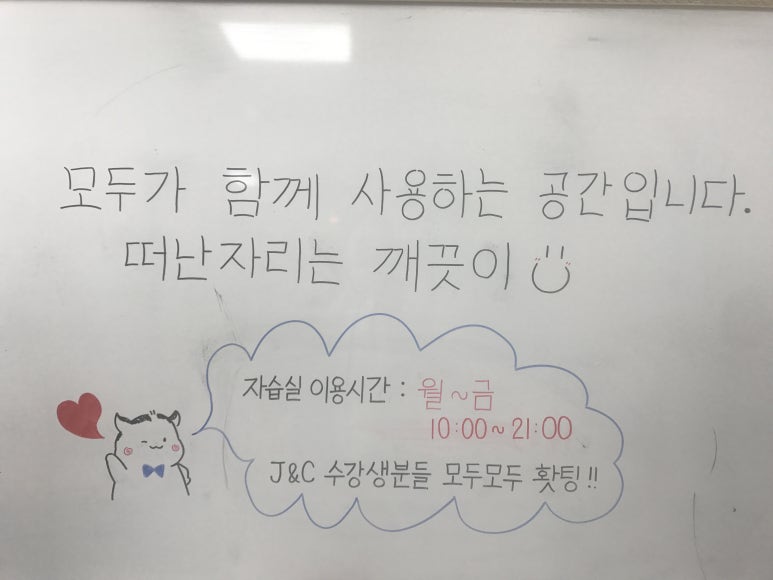 모두가 함께 사용하는 공간입니다.
떠난자리는 깨끗이
자습실 이용시간 : 월~금
10:00~21:00
J&C 수강생분들 모두모두 홧팅!!